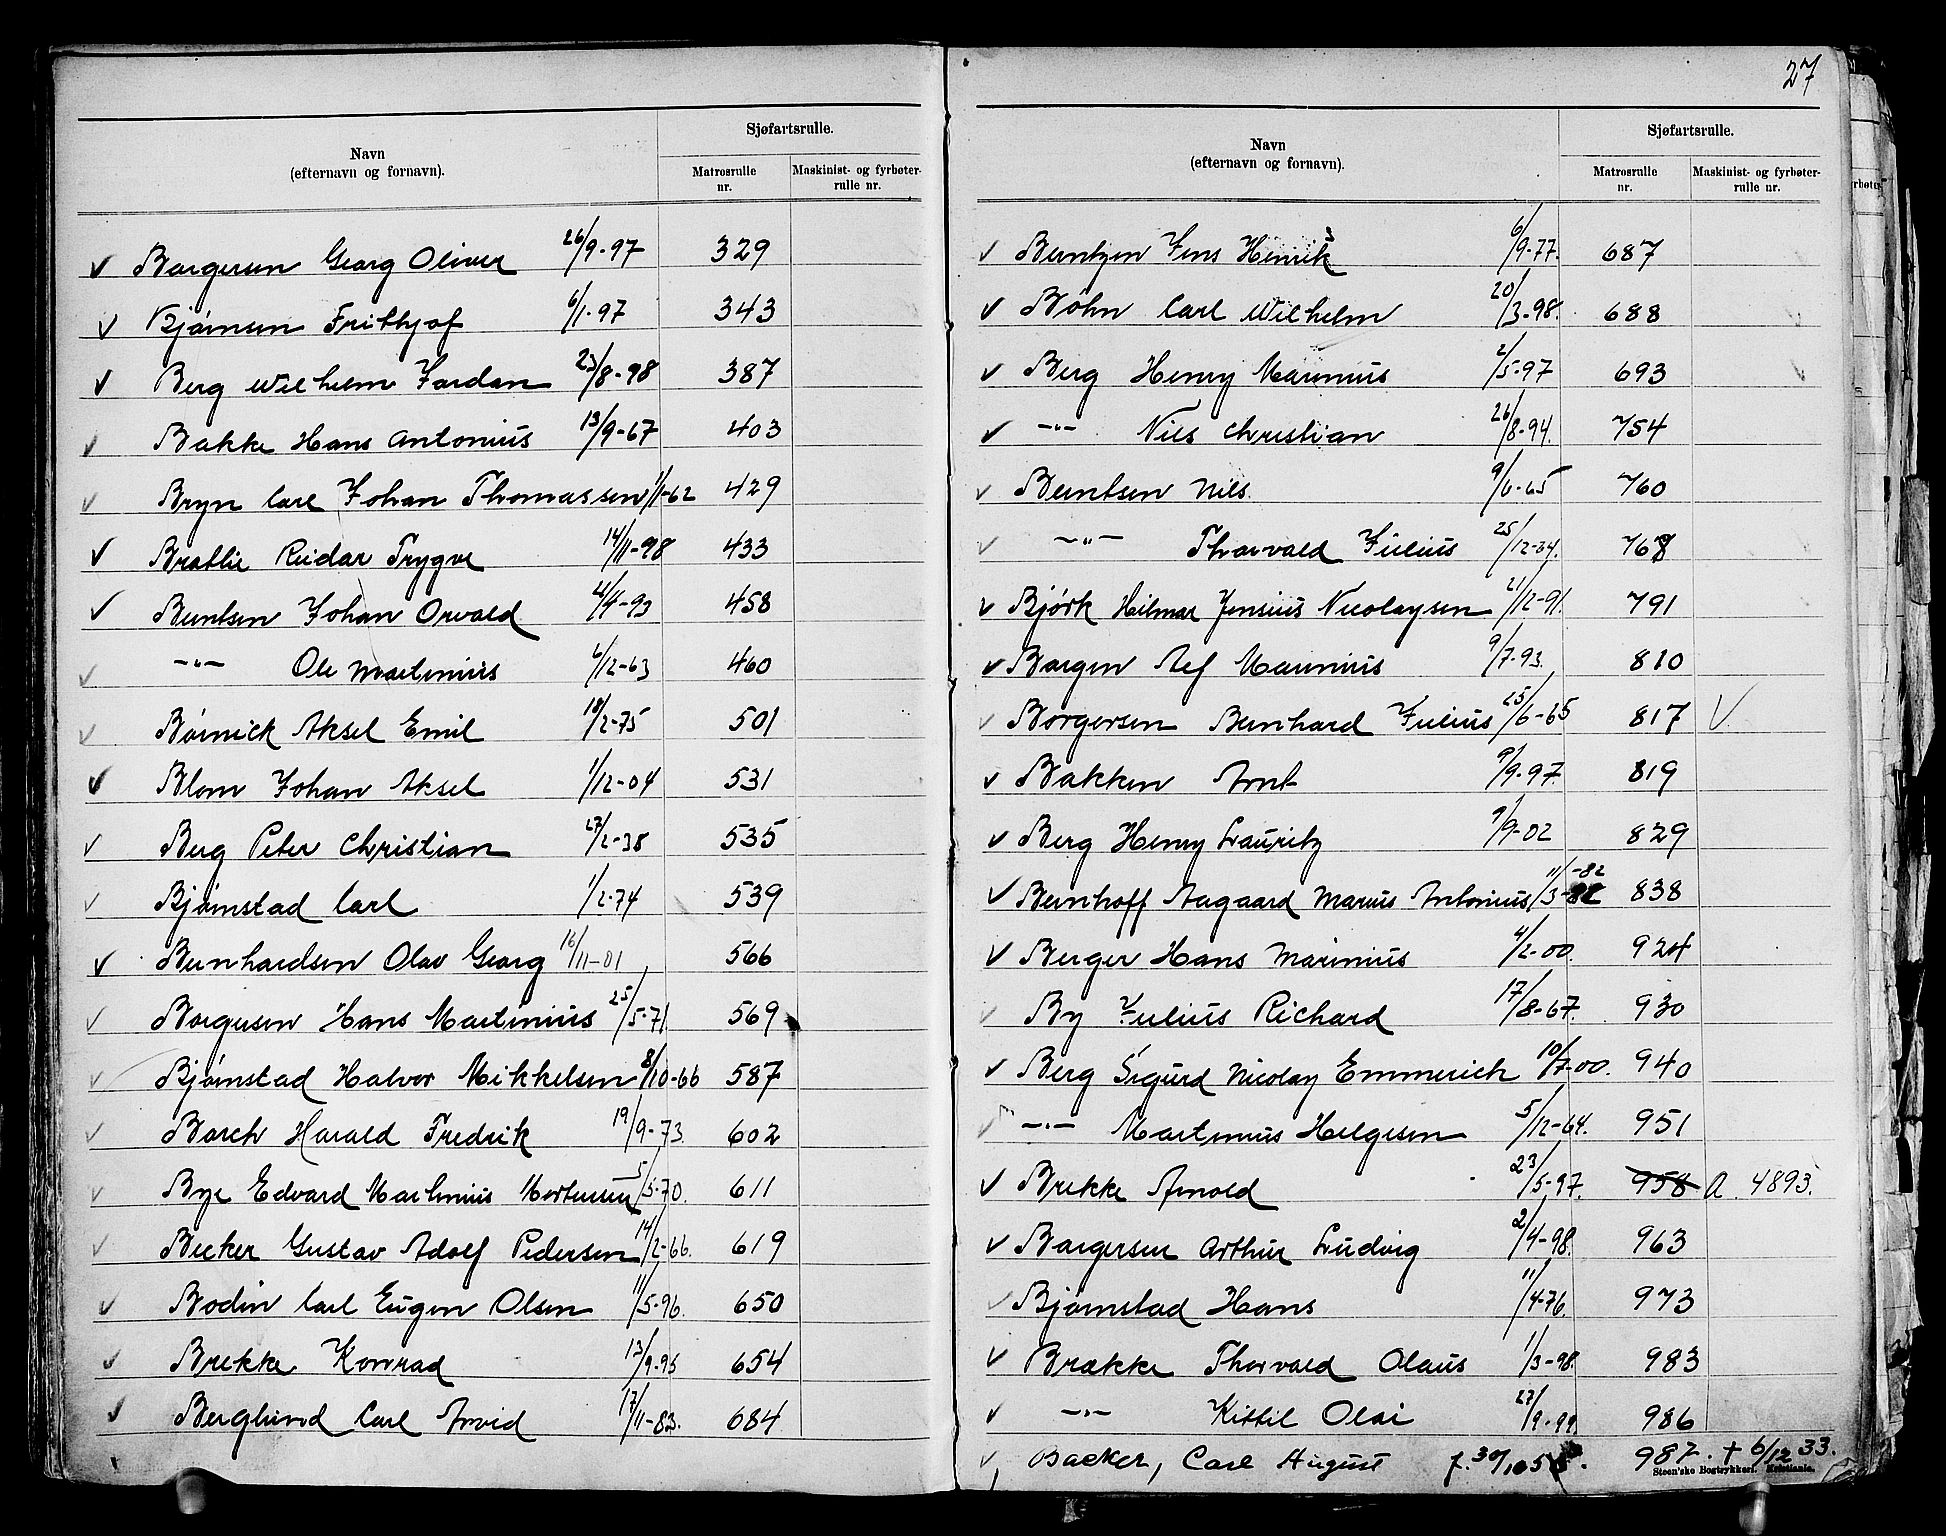 Sjøfartsrulle.
Navn
(efternavn og fornavn).
Matrosrulle nr.
Maskinist- og fyrbøter-rulle nr.
✓ Borgersen Georg Oliver 26/9-97 329
✓ Bjørnsen Frithjof 6/1-97 343
✓ Berg Wilhelm Jordan 23/8-98 387
✓ Bakke Hans Antonius 13/9-67 403
✓ Bryn Carl Johan Thomassen 1/1-62 429
✓ Bratlie Reidar Trygve 14/11-98 433
✓ Berntsen Johan Orvald /4-93 458
✓ -"- Ole Martinius 6/12-63 460
✓ Børnick Aksel Emil 18/2-75 501
✓ Blom Johan Aksel 1/12-04 531
✓ Berg Peter Christian 27/2-38 535
✓ Bjørnstad Carl 1/2-74 539
✓ Bernhardsen Olav Georg 16/11-01 566
✓ Borgersen Hans Martinius 25/5-71. 569
✓ Bjørnstad Halvor Mikkelsen 8/10-66 587
✓ Borch Harald Fredrik 19/9-73. 602
✓ Bye Edvard Martinius Mortensen 5/5-70. 611
✓ Becker Gustav Adolf Pedersen 14/2-66. 619
✓ Bodin Carl Eugen Olsen 11/5-96. 650
✓ Brekke Konrad 13/9-95 654
✓ Berglund Carl Arvid 17/11-83. 684
27
Sjøfartsrulle.
Navn
(efternavn og fornavn).
Matrosrulle nr.
Maskinist- og fyrbøter-rulle nr.
✓ Berntzen Jens Henrik 6/9-77. 687
✓ Böhn Carl Wilhelm 20/3-98. 688
✓ Berg Henry Marinius 2/5-97 693
✓ -"- Nils Christian 26/8-94. 754
✓ Berntsen Nils. 9/6-65 760
✓ -"- Thorvald Julius 25/12- 768
✓ Bjørk Hilmar Jensius Nicolaysen 2/12-91. 791
✓ Borgen Alf Marinius 9/7-93. 810
✓ Borgersen Bernhard Julius 25/6-65 817 V.
✓ Bakken Arnt 9/9-97. 819
✓ Berg Henry Lauritz 9/9-02 829
✓ Bernhoff Aagaard Marius Antonius 11/3-82 838
✓ Berger Hans Marinius 4/2-00. 924
By Julius Richard 17/8-67. 930
✓ Berg Sigurd Nicolay Emmerich 10/7-00. 940
✓ -"- Martinius Helgesen 5/12-64. 951
✓ Brekke Arnold 23/5-97. 958 A. 4893.
✓ Borgersen Arthur Ludvig 2/4-98. 963
✓ Bjørnstad Hans 11/4-76. 973
✓ Brække Thorvald Olaus 1/3-98. 983
✓ -"- Kittil Olai 27/9-99. 986
✓ Backer, Carl August f. 30/10 5 987. + 6/12 33.
Steen'ske Bogtrykkeri. Kristiania.